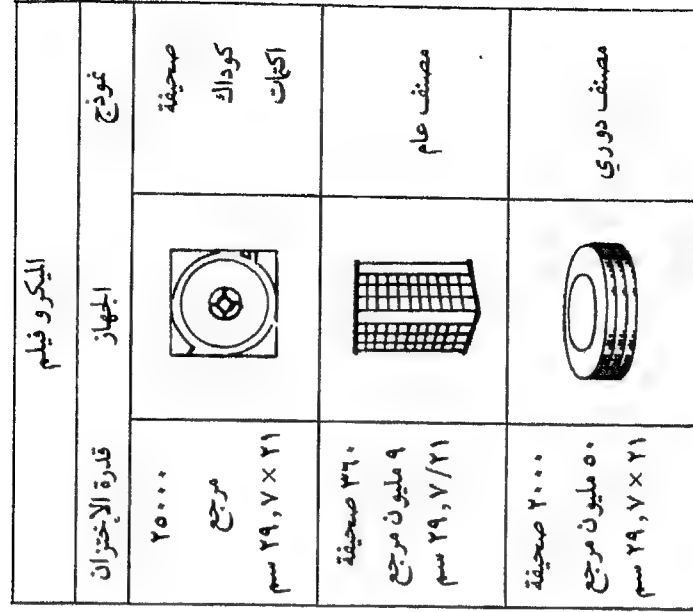 الميكرو فيلم
نموذج
الجهاز
قدرة الإختزان
صحيفة
كوداك
اكتات
٢٥٠٠٠
مرجع
٢١ × ٢٩,٧ سم
مصنف عام
٣٦٠ صحيفة
٩ مليون مرجع
٢١/٢٩,٧ سم
مصنف دوري
٢٠٠٠ صحيفة
٥٠ مليون مرجع
٢١ × ٢٩,٧ سم